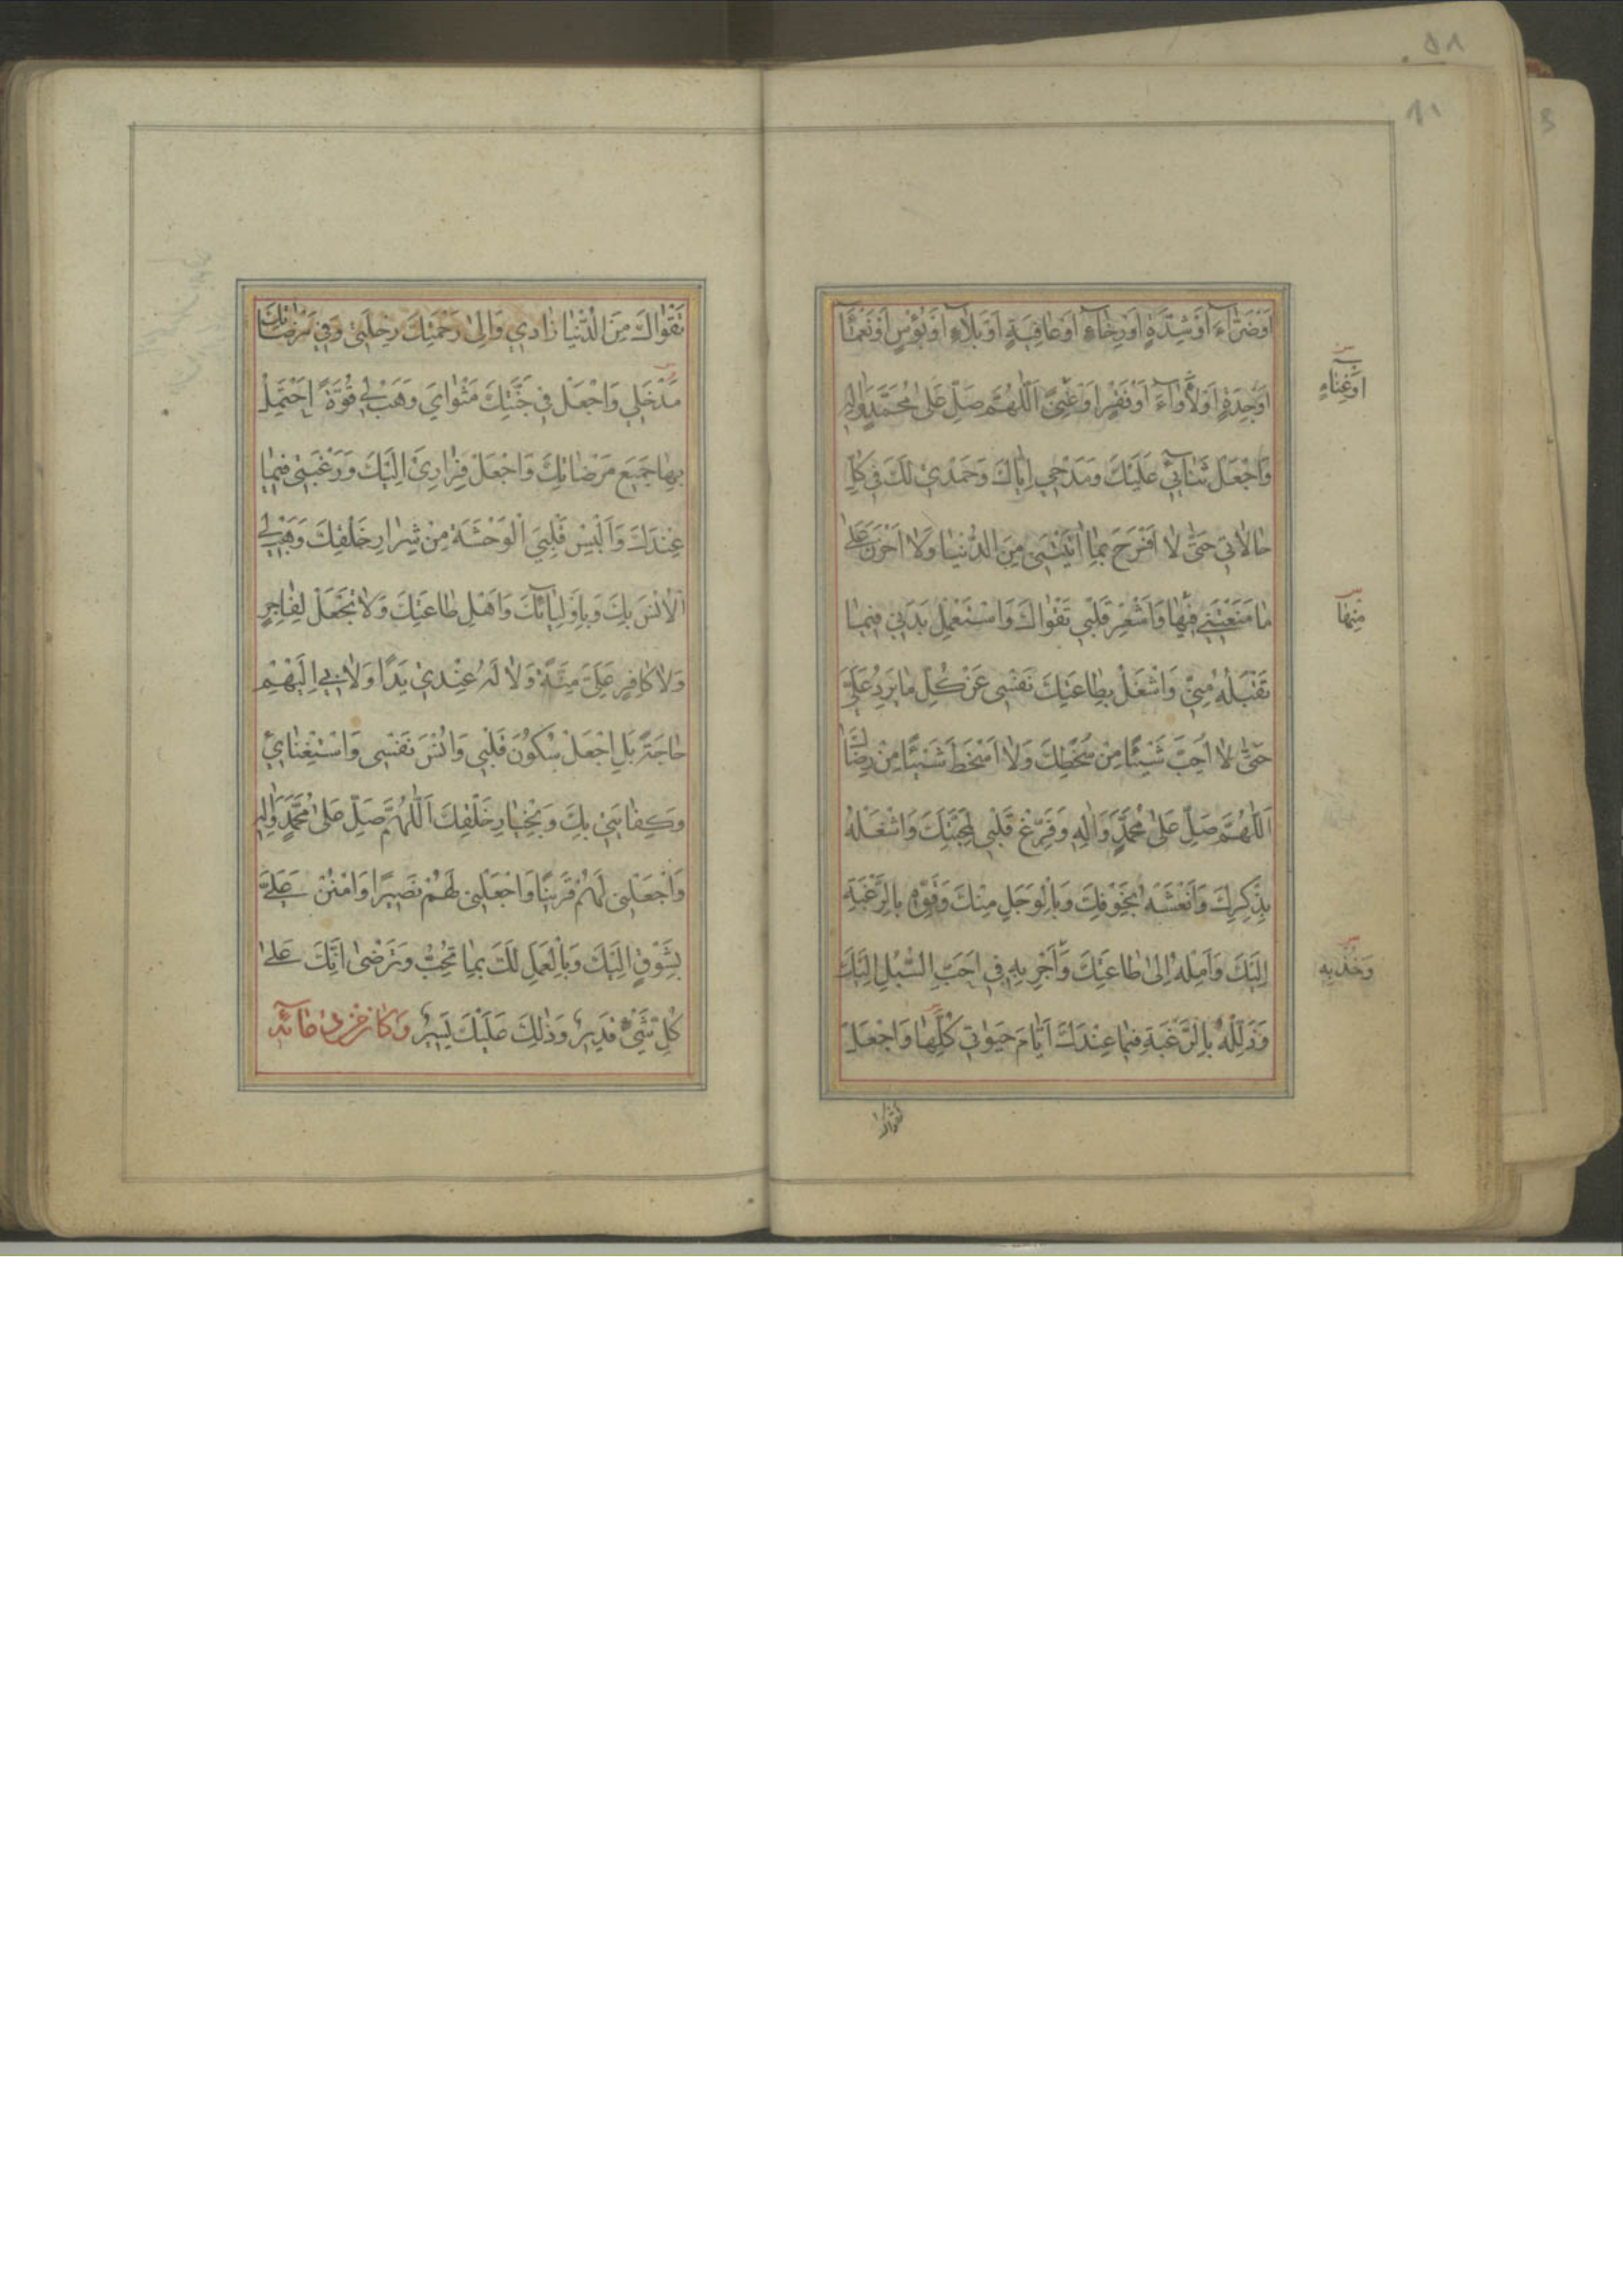 اَوْضَرّٰآءَ اَوْشِدَّةٍ اَوْرَخٰآءٍ اَوْعٰافِيَةٍ اَوْبَلٰاءٍ اَوْبُؤْسٍ اَوْنَعْمٰآءَ
اَوْجِدَةٍ اَوْلَأْوٰآءَ اَوْفَقْرٍ اَوْغِنًى اَللّٰهُمَّ صَلِّ عَلىٰ مُحَمَّدٍ وَاٰلِهِ
وَاجْعَلْ ثَنٰائِي عَلَيْكَ وَمَدْحِي اِيّٰاكَ وَحَمْدِي لَكَ فِي كُلِّ
حٰالٰاتِي حَتّٰى لٰا اَفْرَحَ بِمٰا اٰتَيْتَنِي مِنَ الدُّنْيٰا وَلٰا اَحْزَنَ عَلىٰ
مٰا مَنَعْتَنِي فِيهٰا وَاَشْعِرْ قَلْبِي تَقْوٰاكَ وَاسْتَعْمِلْ بَدَنِي فِيمٰا
تَقْبَلُهُ مِنِّي وَاشْغَلْ بِطٰاعَتِكَ نَفْسِي عَنْ كُلِّ مٰايَرِدُ عَلَيَّ
حَتّٰى لٰا اُحِبَّ شَيْئًا مِنْ سُخْطِكَ وَلٰا اَسْخَطَ شَيْئًا مِنْ رِضٰاكَ
اَللّٰهُمَّ صَلِّ عَلىٰ مُحَمَّدٍ وَاٰلِهِ وَفَرِّغْ قَلْبِي لِمَحَبَّتِكَ وَاشْغَلْهُ
بِذِكْرِكَ وَانْعَشْهُ بِخَوْفِكَ وَبِالْوَجَلِ مِنْكَ وَقَوِّهِ بِالرَّغْبَةِ
اِلَيْكَ وَاَمِلْهُ اِلىٰ طٰاعَتِكَ وَاَجْرِ بِهِ فِي اَحَبِّ السُّبُلِ اِلَيْكَ
وَذَلِّلْهُ بِالرَّغْبَةِ فِيمٰا عِنْدَكَ اَيّٰامَ حَيٰوتِي كُلِّهٰا وَاجْعَلْ
اَوْغِنٰاءٍ
مِنْهٰا
وَخُذْ بِهِ
تقواك
تَقْوٰاكَ مِنَ الدُّنْيٰا زٰادِي وَاِلىٰ رَحْمَتِكَ رِحْلَتِي وَفِي مَرْضٰاتِكَ
مَدْخَلِي وَاجْعَلْ فِي جَنَّتِكَ مَثْوٰايَ وَهَبْ لِي قُوَّةً اَحْتَمِلُ
بِهٰا جَمِيعَ مَرْضٰاتِكَ وَاجْعَلْ فِرٰارِيَ اِلَيْكَ وَرَغْبَتِي فِيمٰا
عِنْدَكَ وَاَلْبِسْ قَلْبِيَ الْوَحْشَةَ مِنْ شِرٰارِ خَلْقِكَ وَهَبْ لِي
الْاُنْسَ بِكَ وَبِاَوْلِيٰائِكَ وَاَهْلِ طٰاعَتِكَ وَلٰا تَجْعَلْ لِفٰاجِرٍ
وَلٰا كٰافِرٍ عَلَيَّ مِنَّةً وَلٰا لَهُ عِنْدِي يَدًا وَلٰا بِي اِلَيْهِمْ
حٰاجَةً بَلِ اجْعَلْ سُكُونَ قَلْبِي وَاُنْسَ نَفْسِي وَاسْتِغْنٰايِي
وَكِفٰايَتِي بِكَ وَبِخِيٰارِ خَلْقِكَ اَللّٰهُمَّ صَلِّ عَلىٰ مُحَمَّدٍ وَاٰلِهِ
وَاجْعَلْنِي لَهُمْ قَرِينًا وَاجْعَلْنِي لَهُمْ نَصِيرًا وَامْنُنْ عَلَيَّ
بِشَوْقٍ اِلَيْكَ وَبِالْعَمَلِ لَكَ بِمٰا تُحِبُّ وَتَرْضىٰ اِنَّكَ عَلىٰ
كُلِّ شَيْءٍ قَدِيرٌ وَذٰلِكَ عَلَيْكَ يَسِيرٌ وَكٰانَ مِنْ دُعٰائِهِ